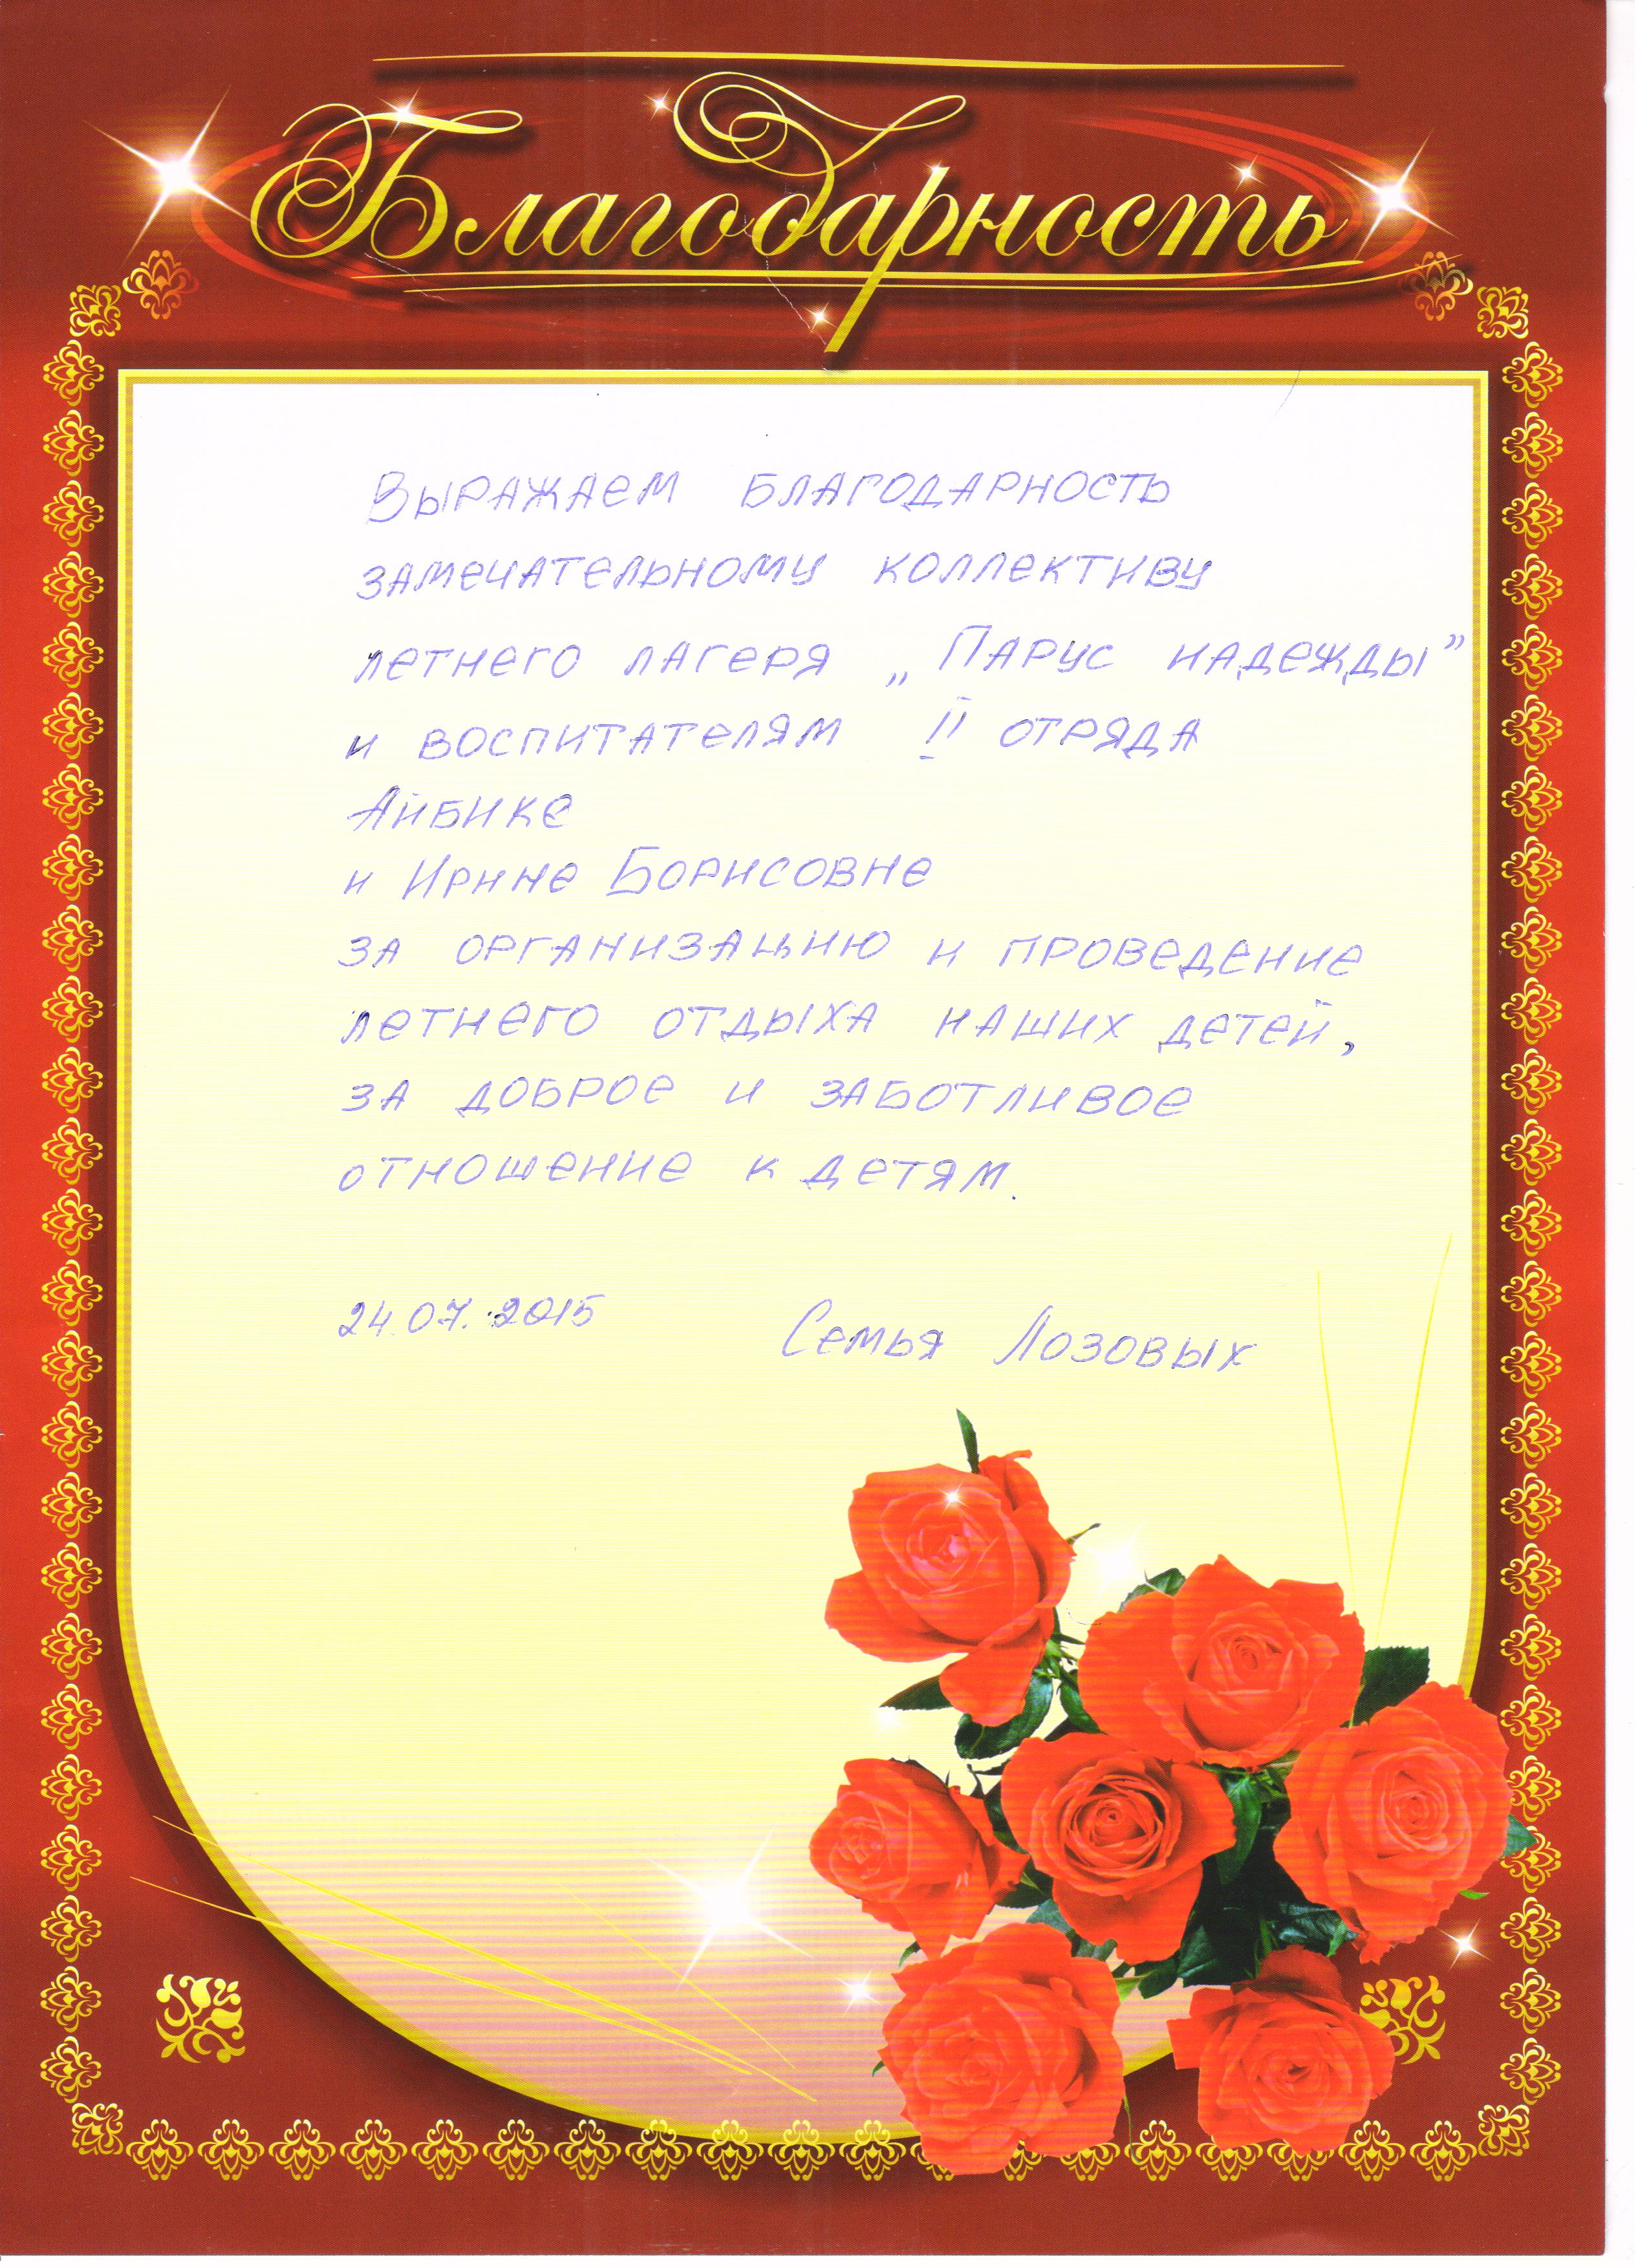 Благодарность
Выражаем благодарность
замечательному коллективу
летнего лагеря „Парус надежды”
и воспитателям II отряда
Айбике
и Ирине Борисовне
за организацию и проведение
летнего отдыха наших детей,
за доброе и заботливое
отношение к детям.
24.07.2015
Семья Лозовых